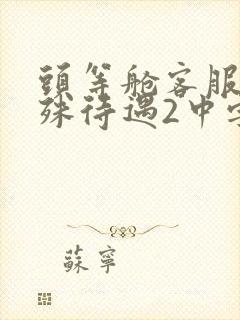 頭等舱客服
殊待遇2中字
蘇寧